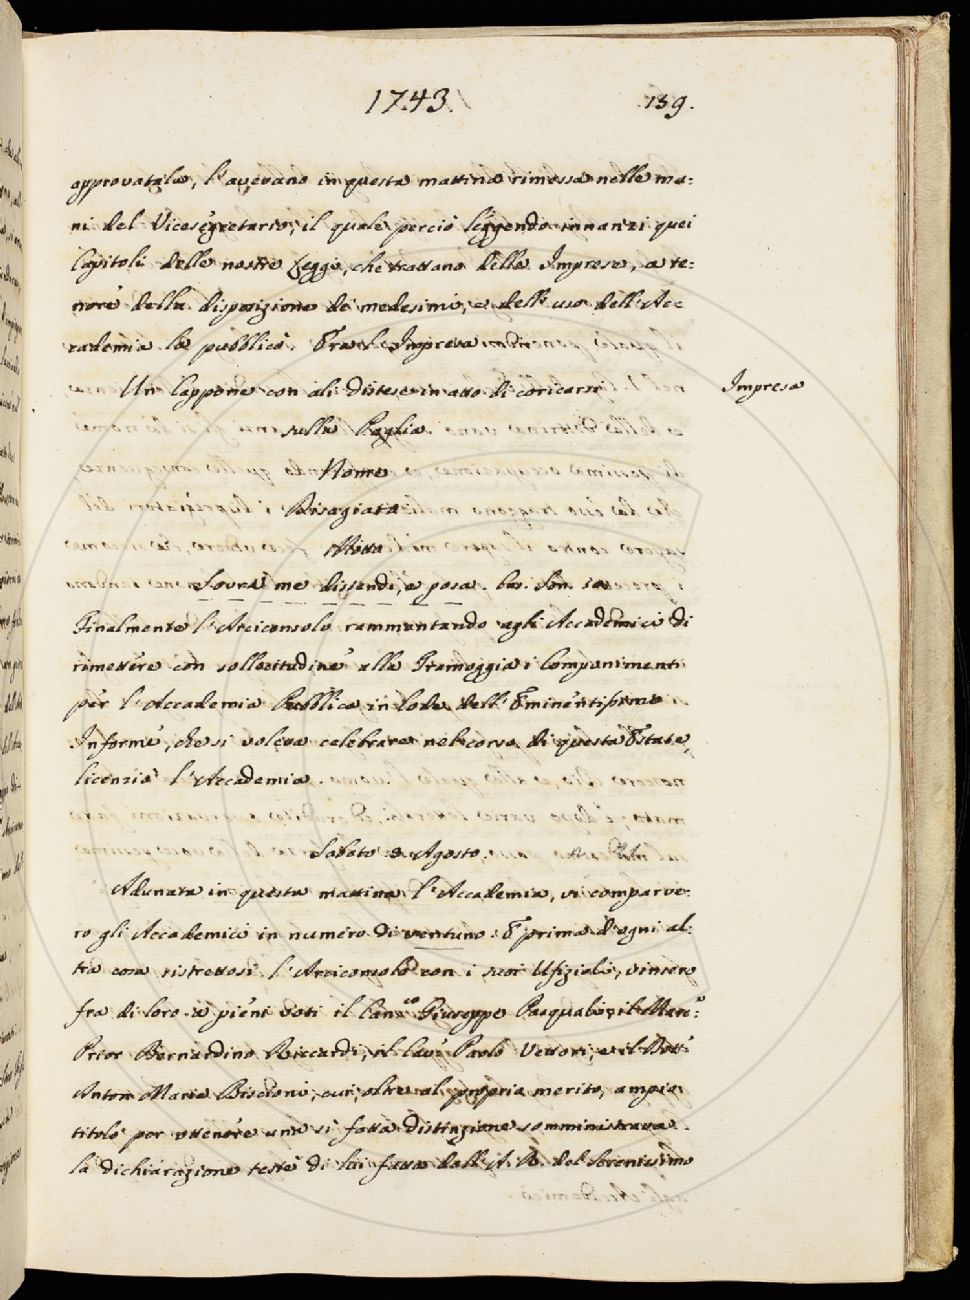 1743.
139.
approvatala, l'avevano in questa mattina rimessa nelle ma:
ni del Vicesegretario, il quale perciò leggendo innanzi quei
Capitoli delle nostre Leggi, che trattano delle Imprese, a te:
nore della disposizione de' medesimi, e dell'uso dell'Ac:
cademia la pubblicò. Era l'Impresa
Un Cappone con ali distese in atto di coricarsi
Impresa
sulla Paglia.
Nome
Disagiata
Motto
Sovra me distendi, e posa. Son.
Finalmente l'Arciconsolo rammentando agli Accademici di
rimettere con sollecitudine alla Tramoggia i Componimenti
per l'Accademia Pubblica in lode dell'Eminentissimo
Informe, che si voleva celebrare nel corso di questa Estate,
licenziò l'Accademia.
Sabato 3. Agosto.
Adunata in questa mattina l'Accademia, vi comparve:
ro gli Accademici in numero di ventuno. E prima d'ogni al:
tra cosa ristrettosi l'Arciconsolo con i suoi Ufiziali, vinsero
fra di loro a pieni voti il Can:co Giuseppe Pasquali, il Mar:
Prior Bernardino Riccardi, il Cav: Paolo Vettori, e il Dott:
Anton Maria Biscioni, cui, oltre al proprio merito, ampio
titolo per ottenere una sì fatta distinzione somministrava
la dichiarazione testè di lui fatta dall'A. R. del Serenissimo